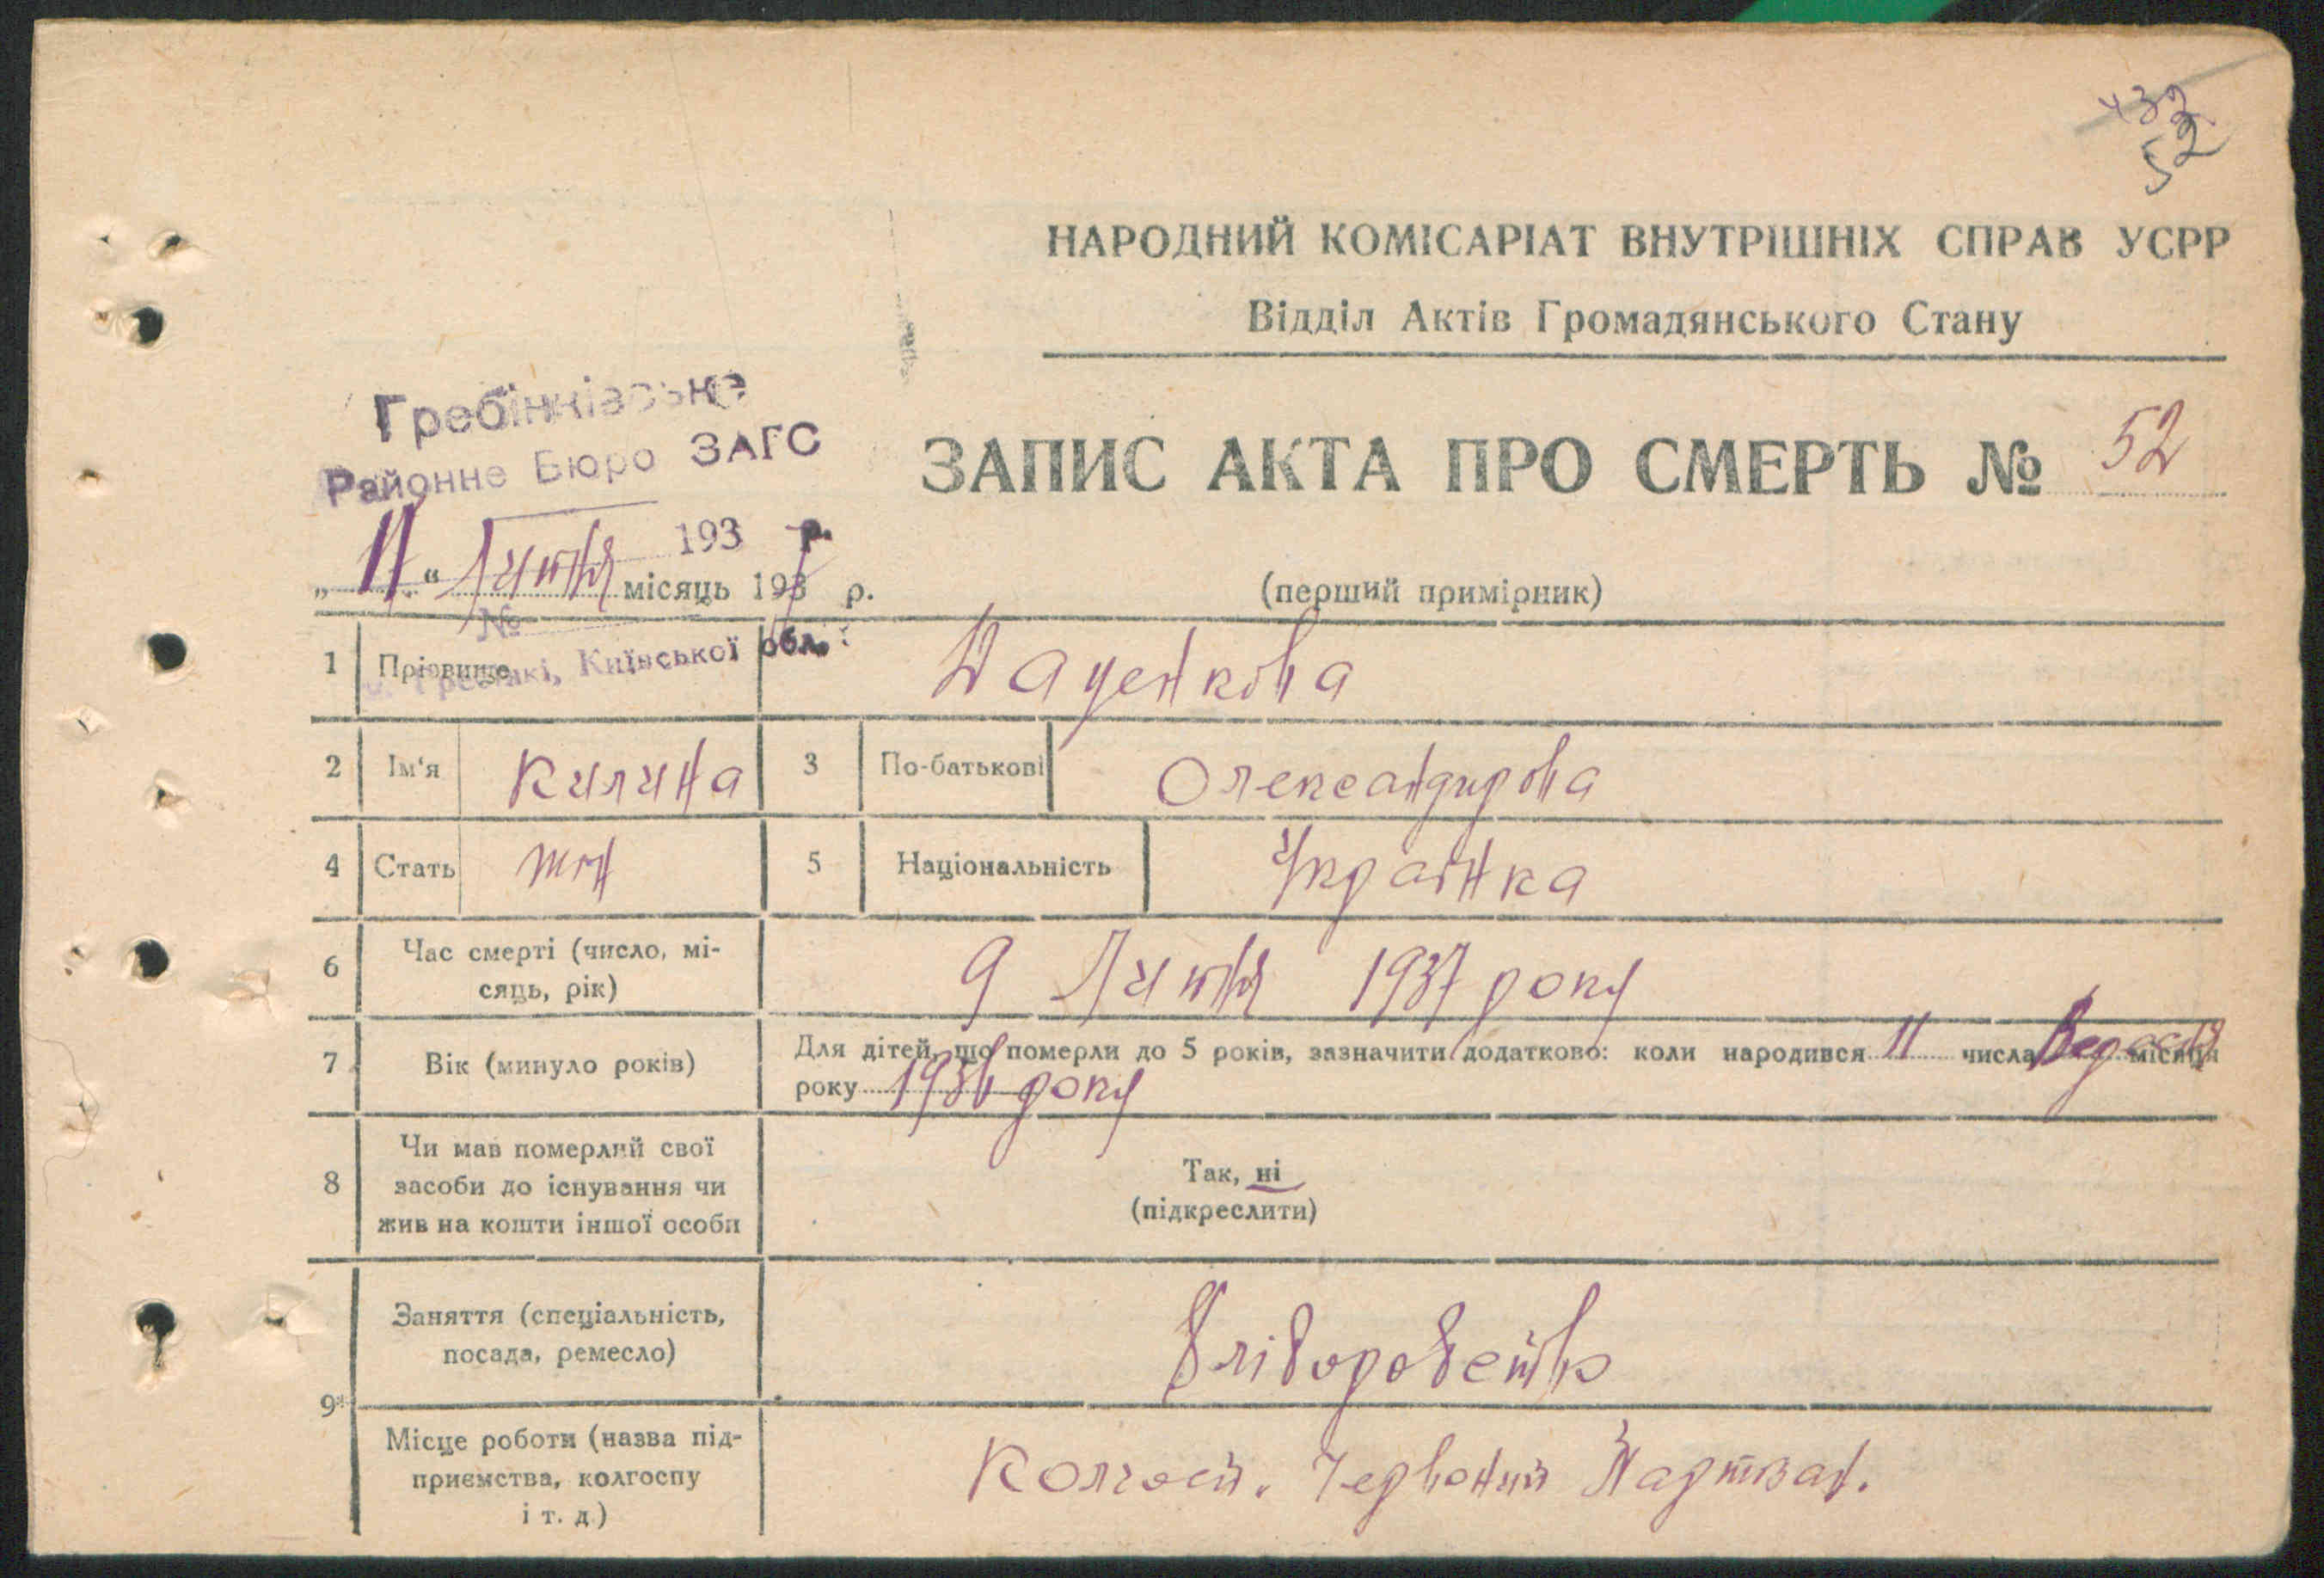 432
52
НАРОДНИЙ КОМІСАРІАТ ВНУТРІШНІХ СПРАВ УСРР
Відділ Актів Громадянського Стану
Гребінківське
Районне Бюро ЗАГС
ЗАПИС АКТА ПРО СМЕРТЬ № 52
193 р.
„11“ Лютня місяць 1937 р.
(перший примірник)
№
с. Гребінкі, Київської обл.
1 Прізвище Даценкова
2 Ім'я Килина 3 По-батькові Олександирова
4 Стать жін 5 Національність Українка
6 Час смерті (число, мі-
сяць, рік) 9 Лютня 1937 року
7 Вік (минуло років) Для дітей, що померли до 5 років, зазначити додатково: коли народився 11 числа місяця
року 1936 року
8 Чи мав померлий свої
засоби до існування чи
жив на кошти іншої особи
Так, ні
(підкреслити)
9 Заняття (спеціальність,
посада, ремесло) Хліборобство
Місце роботи (назва під-
приємства, колгоспу
і т. д.) Колгосп. Червоний Партизан.